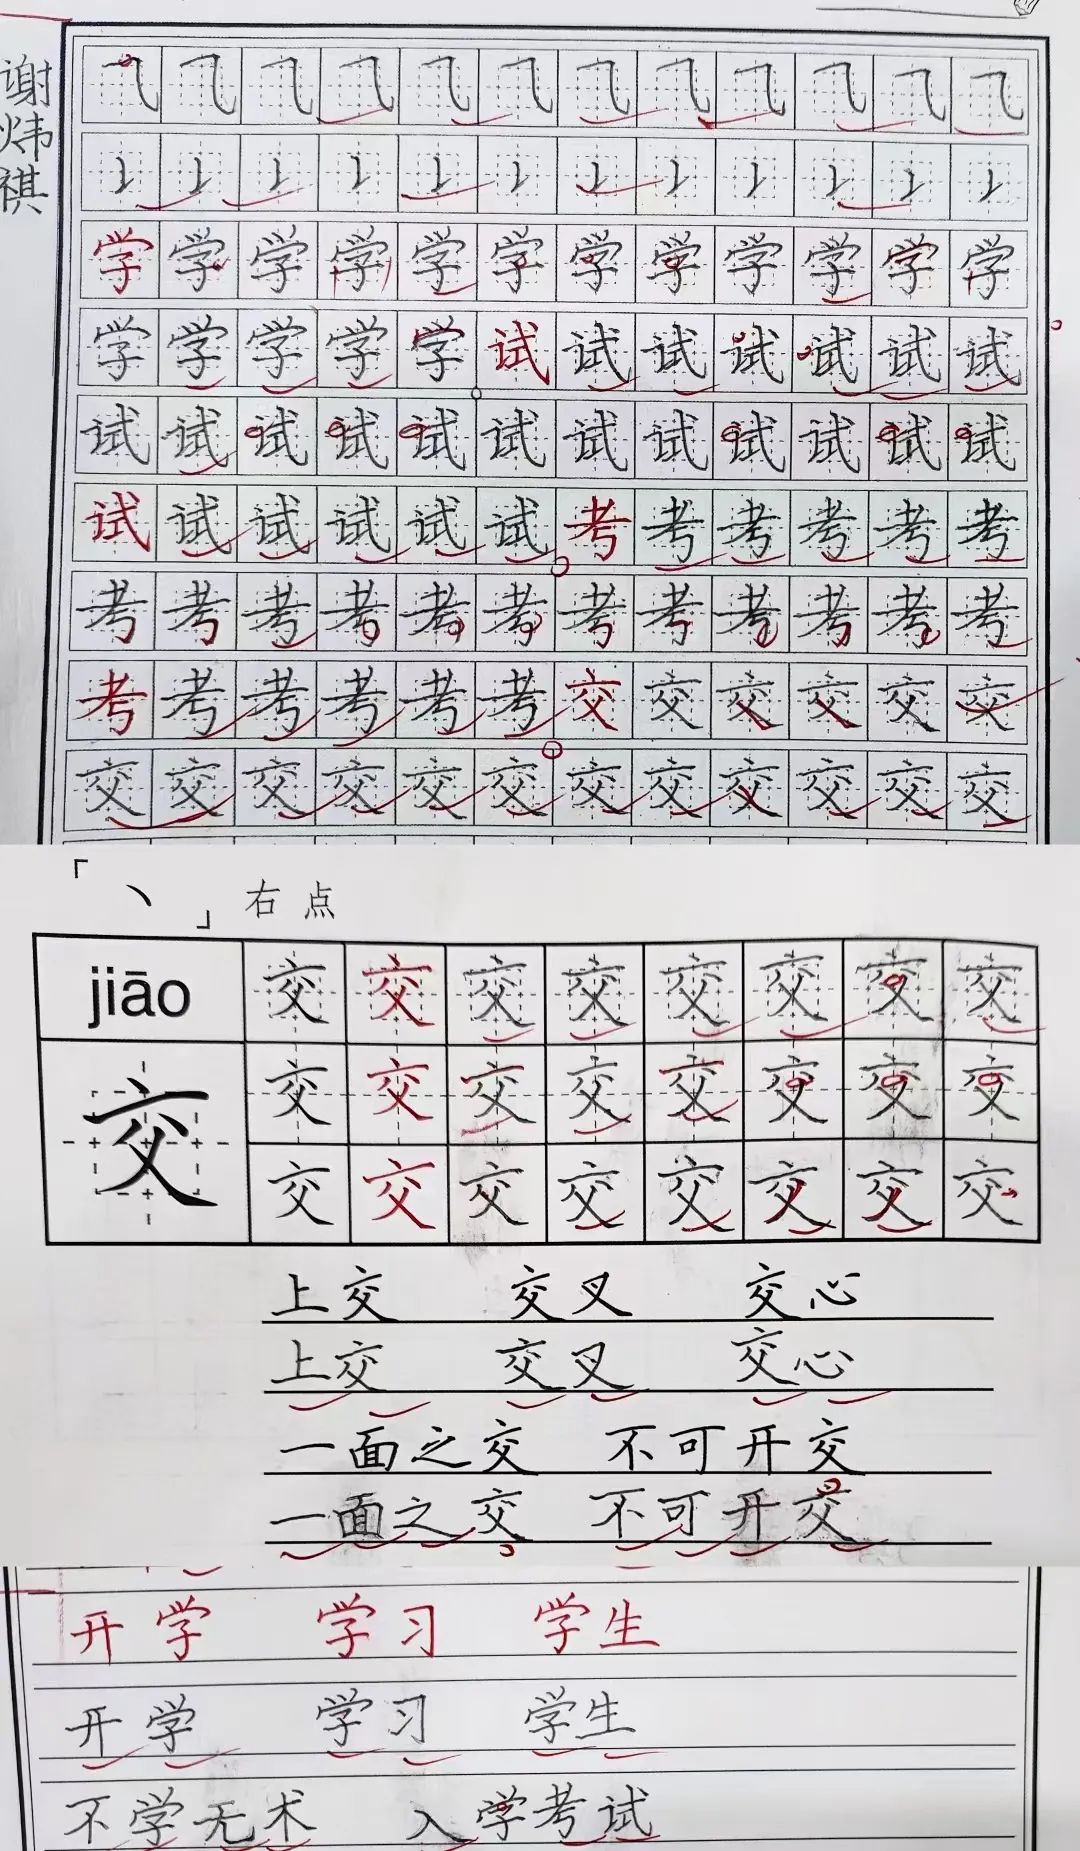 谢炜祺
乁乁乁乁乁乁乁乁乁乁乁乁
学学学学学学学学学学学学
学学学学学试试试试试试试
试试试试试试试试试试试试
试试试试试试考考考考考考
考考考考考考考考考考考考
考考考考考考交交交交交交
交交交交交交交交交交交交
「丶」右点
jiāo 交交交交交交交交
交 交交交交交交交交
交交交交交交交交
上交 交叉 交心
上交 交叉 交心
一面之交 不可开交
一面之交 不可开交
开学 学习 学生
开学 学习 学生
不学无术 入学考试